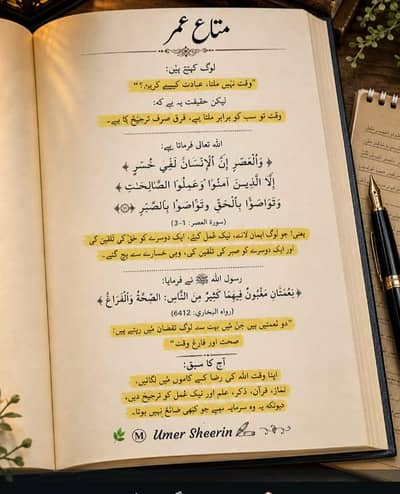 متاع عمر
لوگ کہتے ہیں:
"وقت نہیں ملتا، عبادت کیسے کریں؟"
لیکن حقیقت یہ ہے کہ:
وقت تو سب کو برابر ملتا ہے، فرق صرف ترجیح کا ہے۔
اللہ تعالی فرماتا ہے:
﴿ وَالْعَصْرِ إِنَّ الْإِنْسَانَ لَفِي خُسْرٍ ﴾
إِلَّا الَّذِينَ آمَنُوا وَعَمِلُوا الصَّالِحَاتِ ﴾
وَتَوَاصَوْا بِالْحَقِّ وَتَوَاصَوْا بِالصَّبْرِ ﴾
(سورة العصر: 1-3)
یعنی! جو لوگ ایمان لائے، نیک عمل کیے، ایک دوسرے کو حق کی تلقین کی
اور ایک دوسرے کو صبر کی تلقین کی، وہی خسارے سے بچ گئے۔
رسول اللہ ﷺ نے فرمایا:
﴿ نِعْمَتَانِ مَغْبُونٌ فِيهِمَا كَثِيرٌ مِنَ النَّاسِ: الصِّحَّةُ وَالْفَرَاغُ ﴾
(رواه البخاري: 6412)
"دو نعمتیں ہیں جن میں بہت سے لوگ نقصان میں رہتے ہیں:
صحت اور فارغ وقت"
آج کا سبق:
اپنا وقت اللہ کی رضا کے کاموں میں لگائیں،
نماز، قرآن، ذکر، علم اور نیک عمل کو ترجیح دیں،
کیونکہ یہ وہ سرمایہ ہے جو کبھی ضائع نہیں ہوتا۔
M Umer Sheerin